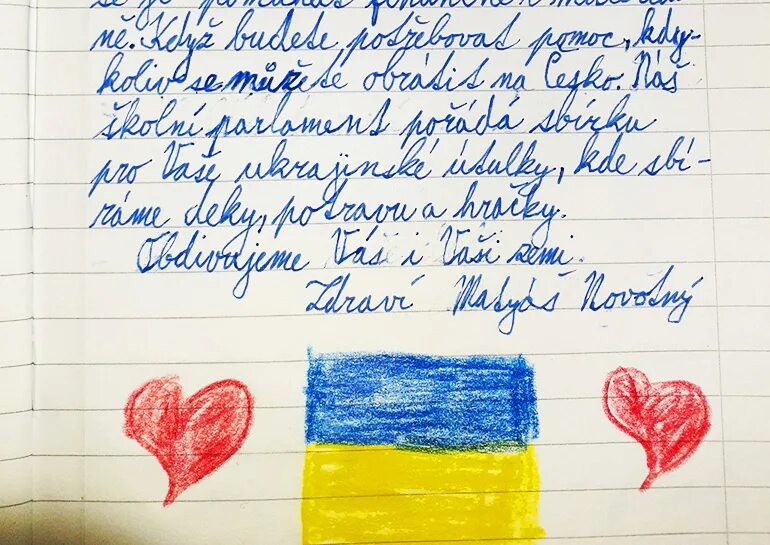 ně. Když budete potřebovat pomoc, kdy-
koliv se můžete obrátit na Česko. Náš
školní parlament pořádá sbírku
pro Vaše ukrajinské útulky, kde sbí-
ráme deky, potravu a hračky.
Obdivujeme Vás i Vaši zemi.
Zdraví Matyáš Novotný